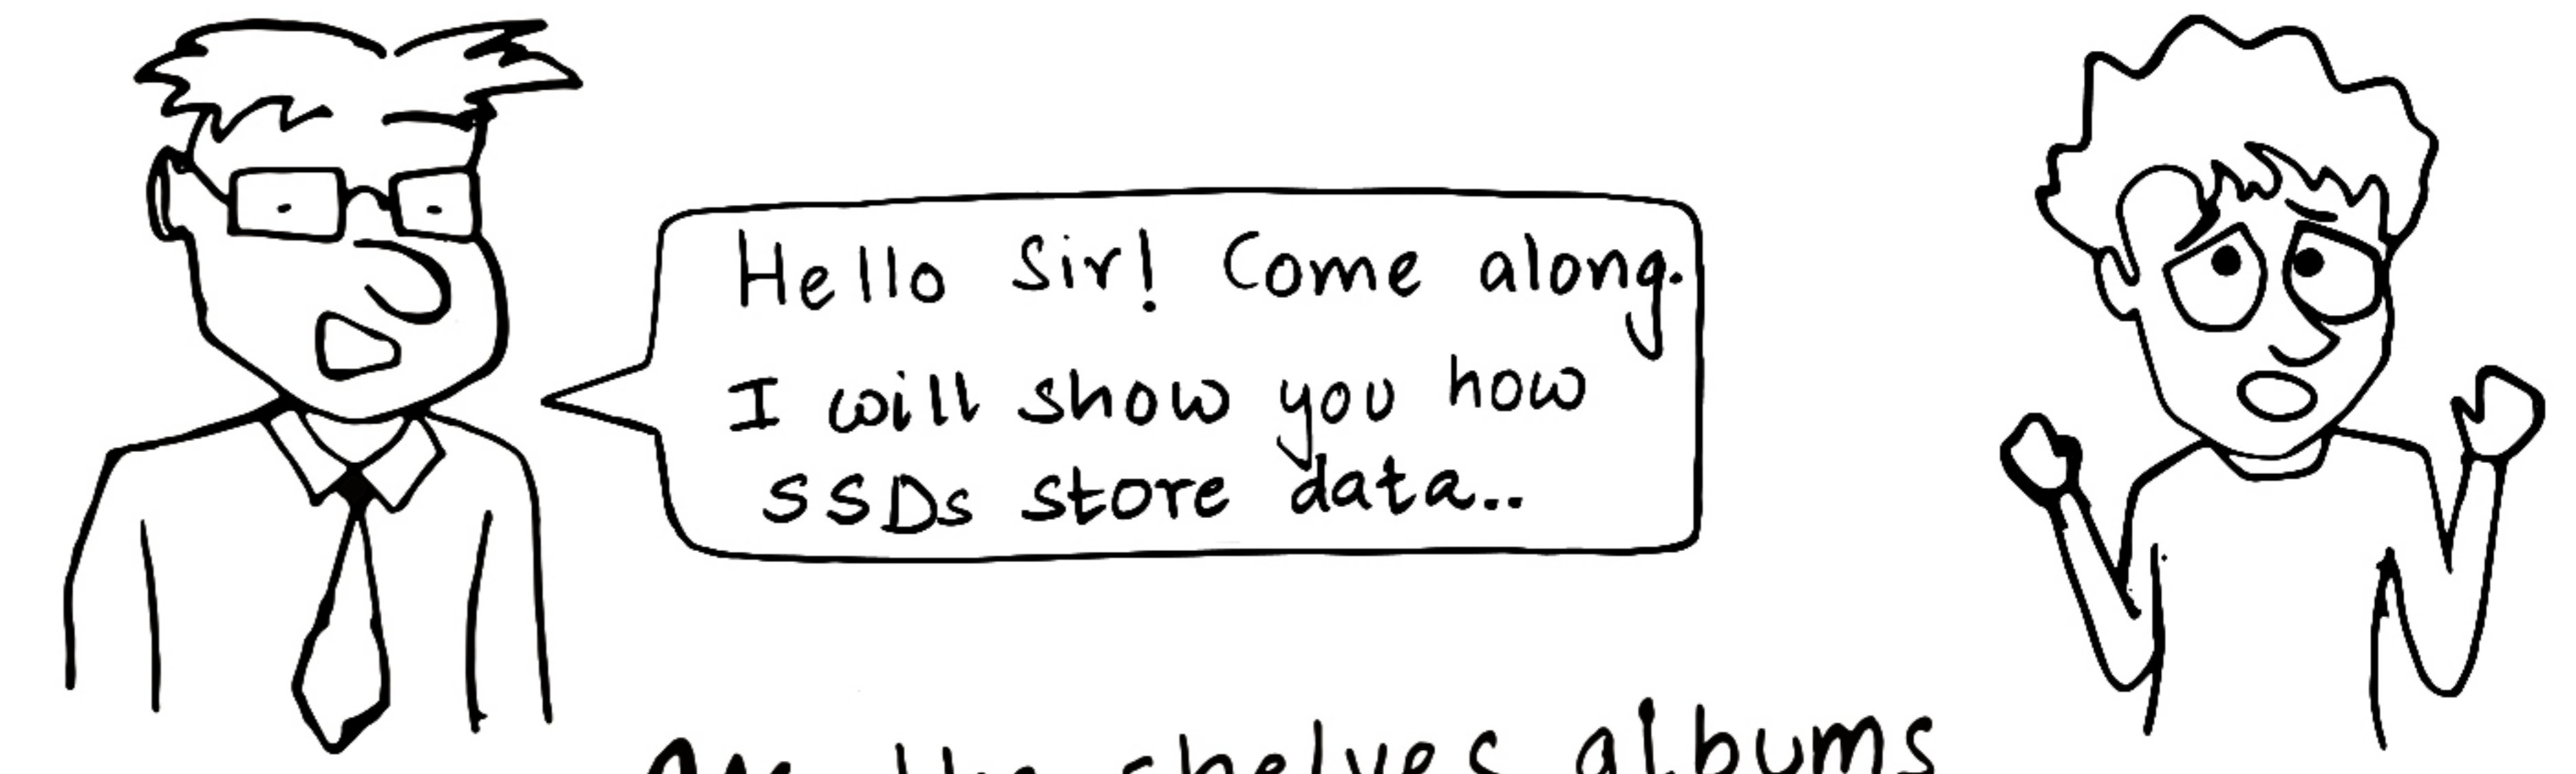 Hello Sir! Come along.
I will show you how
SSDs store data..
the shelves albums